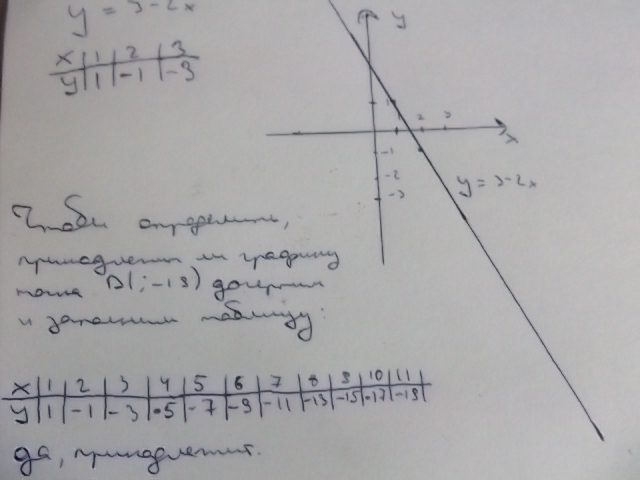 y = 3-2x
x | 1 | 2 | 3
y | 1 | -1 | -3
y
1
1 2 3
x
-1
-2
-3
y = 3-2x
Чтоби определить,
принадлежит ли графику
точка B( ;-19) дочертим
и заполним таблицу:
x | 1 | 2 | 3 | 4 | 5 | 6 | 7 | 8 | 9 | 10 | 11
y | 1 | -1 | -3 | -5 | -7 | -9 | -11 | -13 | -15 | -17 | -19
да, принадлежит.